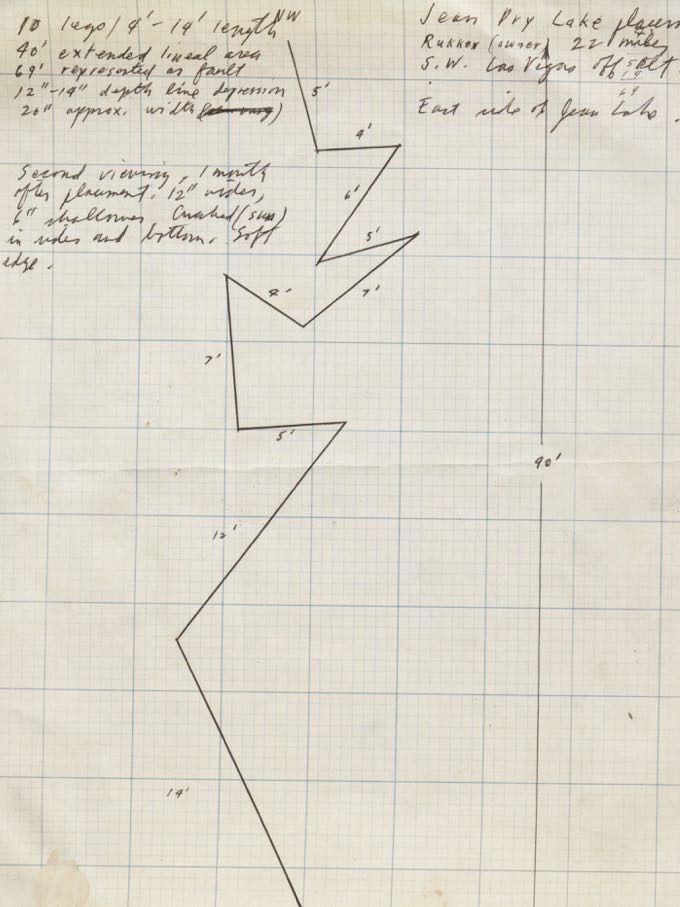 10 legs/4'-14' length
40' extended lineal area
69' represented as fault
12"-14" depth line depression
20" approx. width
NW
Jean Dry Lake
(owner) 22 miles
S.W. Las Vegas off
East side of Jean Lake.
Second viewing, 1 month
after placement. 12" wider,
6" shallower Crushed
in sides and bottom. Soft
edge.
5'
4'
6'
5'
7'
4'
7'
5'
12'
14'
90'